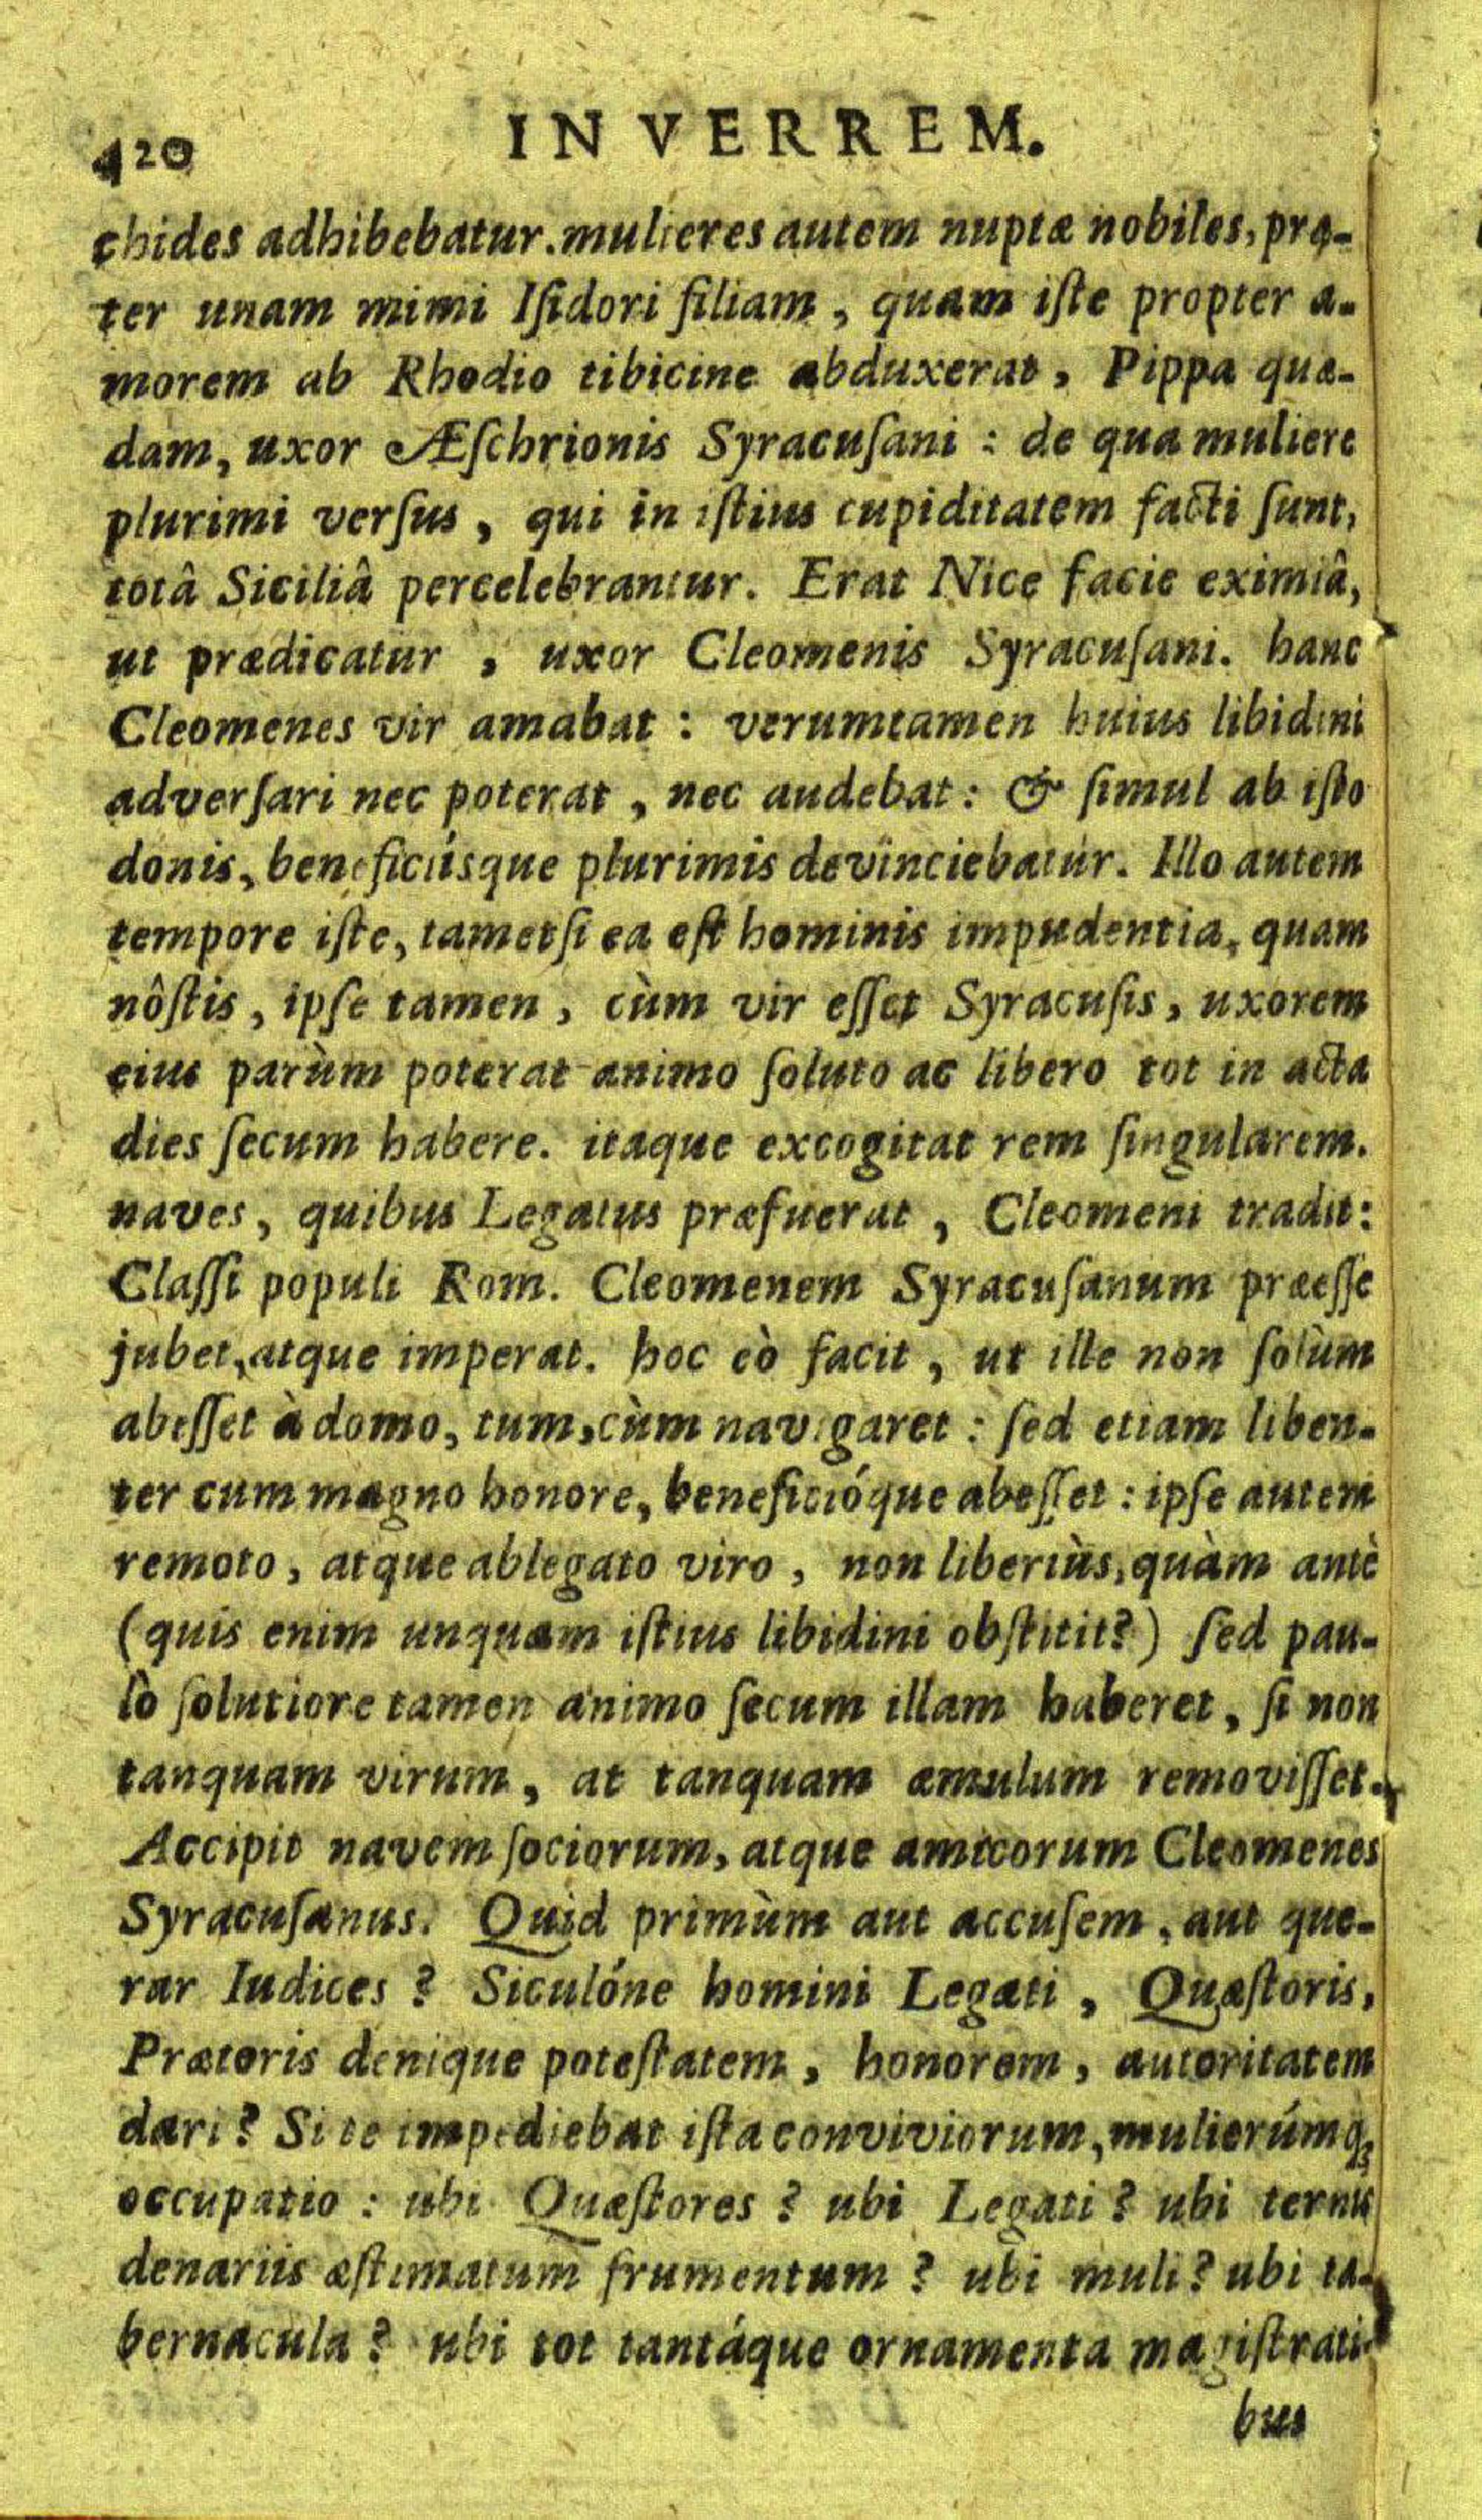 420
IN VERREM.
chides adhibebatur. mulieres autem nuptæ nobiles, præ-
ter unam mimi Iſidori filiam, quam iſte propter a-
morem ab Rhodio tibicine abduxerat, Pippa quæ-
dam, uxor Æſchrionis Syracuſani : de qua muliere
plurimi verſus, qui in iſtius cupiditatem facti ſunt,
totâ Siciliâ percelebrantur. Erat Nice facie eximiâ,
ut prædicatur, uxor Cleomenis Syracuſani. hanc
Cleomenes vir amabat : verumtamen huius libidini
adverſari nec poterat, nec audebat : & ſimul ab iſto
donis, beneficiísque plurimis devinciebatur. Illo autem
tempore iſte, tametſi ea eſt hominis impudentia, quam
nôſtis, ipſe tamen, cùm vir eſſet Syracuſis, uxorem
eius parùm poterat animo ſoluto ac libero tot in acta
dies ſecum habere. itaque excogitat rem ſingularem.
naves, quibus Legatus præfuerat, Cleomeni tradit:
Claſſi populi Rom. Cleomenem Syracuſanum præeſſe
jubet, atque imperat. hoc eò facit, ut ille non ſolùm
abeſſet à domo, tum, cùm navigaret : ſed etiam liben-
ter cum magno honore, beneficióque abeſſet : ipſe autem
remoto, atque ablegato viro, non liberiùs, quàm antè
(quis enim unquam iſtius libidini obſtitit?) ſed pau-
lò ſolutiore tamen animo ſecum illam haberet, ſi non
tanquam virum, at tanquam æmulum removiſſet.
Accipit navem ſociorum, atque amicorum Cleomenes
Syracuſanus. Quid primùm aut accuſem, aut que-
rar Iudices ? Siculóne homini Legati, Quæſtoris,
Prætoris denique poteſtatem, honorem, autoritatem
dari ? Si te impediebat iſta conviviorum, mulierúmq;
occupatio : ubi Quæſtores ? ubi Legati ? ubi ternis
denariis æſtimatum frumentum ? ubi muli ? ubi ta-
bernacula ? ubi tot tantáque ornamenta magiſtrati-
bus